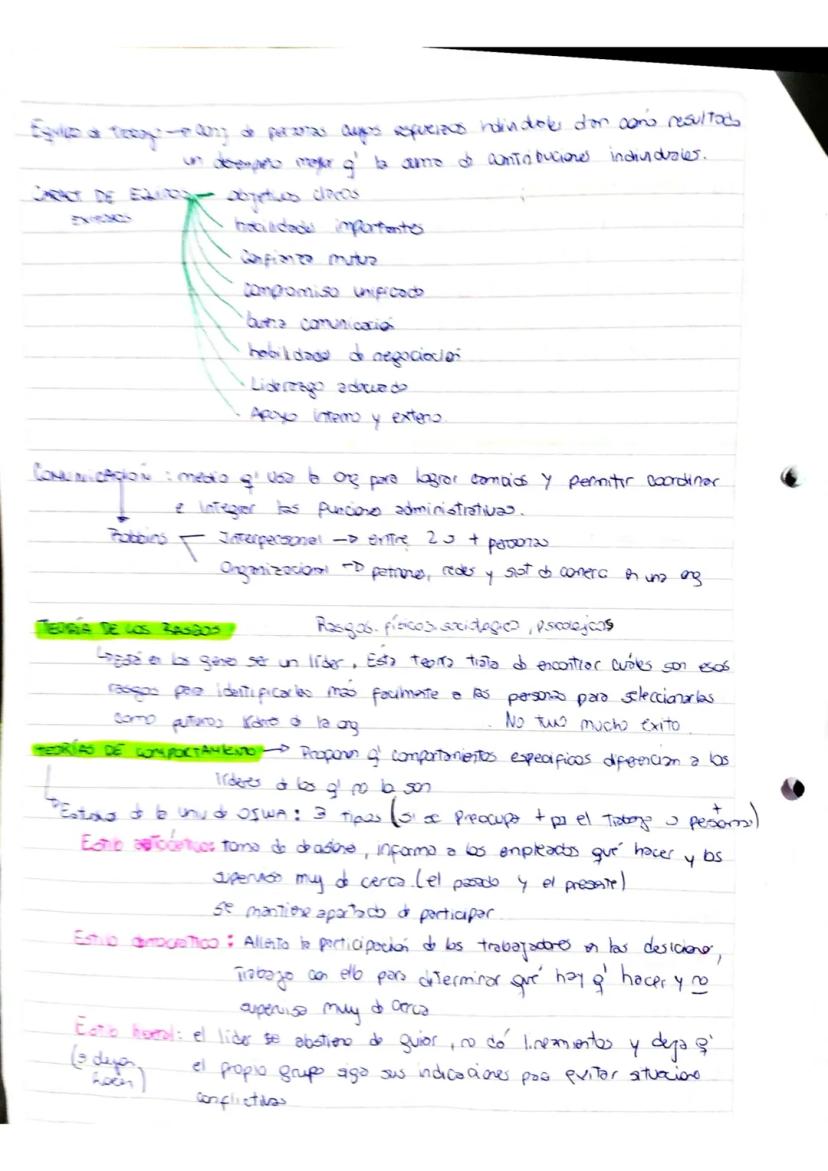 Equipo de Trabajo → conj de personas cuyos esfuerzos individuales dan como resultado
un desempeño mayor q' la suma de contribuciones individuales.
CARACT DE EQUIPOS - objetivos claros
EXITOSOS
habilidades importantes
Confianza mutua
compromiso unificado
buena comunicación
habilidades de negociación
Liderazgo adecuado
Apoyo interno y externo
COMUNICACIÓN : medio q' usa la org para lograr cambios y permitir coordinar
e integrar las funciones administrativas.
Robbins - Interpersonal → entre 2 o + personas
Organizacional → patrones, redes y sist de en una org
TEORÍA DE LOS RASGOS: Rasgos. físicos. sociológico, psicológicos
en los genes ser un líder. Esta teoría trata de encontrar cuáles son esos
rasgos para identificarlas más facilmente a las personas para seleccionarlas
como futuros líderes de la org. No tuvo mucho éxito.
TEORÍAS DE COMPORTAMIENTO → Proponen q' comportamientos especificos diferencian a los
líderes de los q' no lo son
Estudios de la univ de : 3 tipos (si se preocupa + por el trabajo o personas) +
Estilo autocrático: toma de , informa a los empleados qué hacer y los
supervisa muy de cerca. (el pasado y el presente)
se mantiene apartado de participar.
Estilo democrático: Alienta la participación de los trabajadores en las desiciones,
Trabaja con ello para determinar qué hay q' hacer y no
supervisa muy de cerca
Estilo liberal: el líder se abstiene de guiar, no dá lineamientos y deja q'
(o dejar hacer) el propio grupo siga sus indicaciones para evitar situaciones
conflictivas